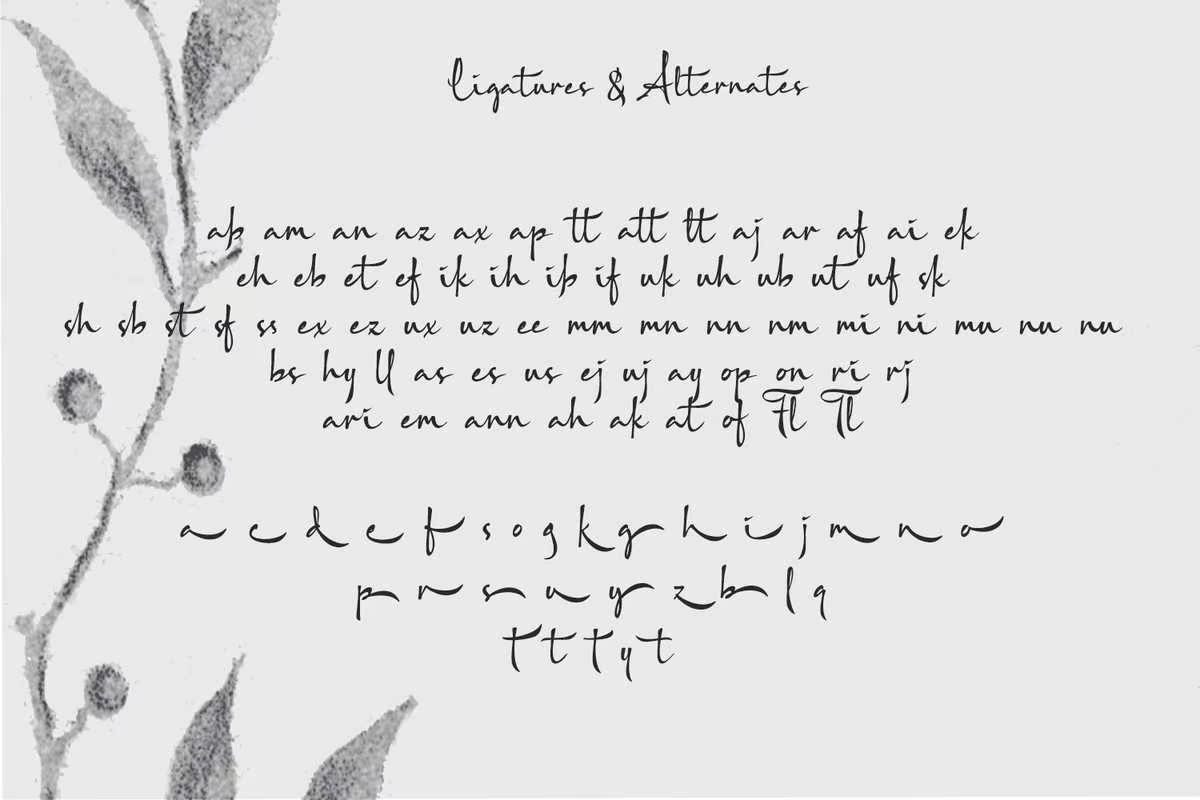 Ligatures & Alternates
ab am an az ax ap tt att lt aj ar af ai ek
eh eb et ef ik ih ib if uk uh ub ut uf sk
sh sb st sf ss ex ez ux uz ee mm mn nn nm mi ni mu nu nu
bs hy ll as es us ej uj ay op on ri rj
ari em ann ah ak at of Fl Tl
a c d e f s o g k g h i j m n o
p r s u y z b l q
T t T y t